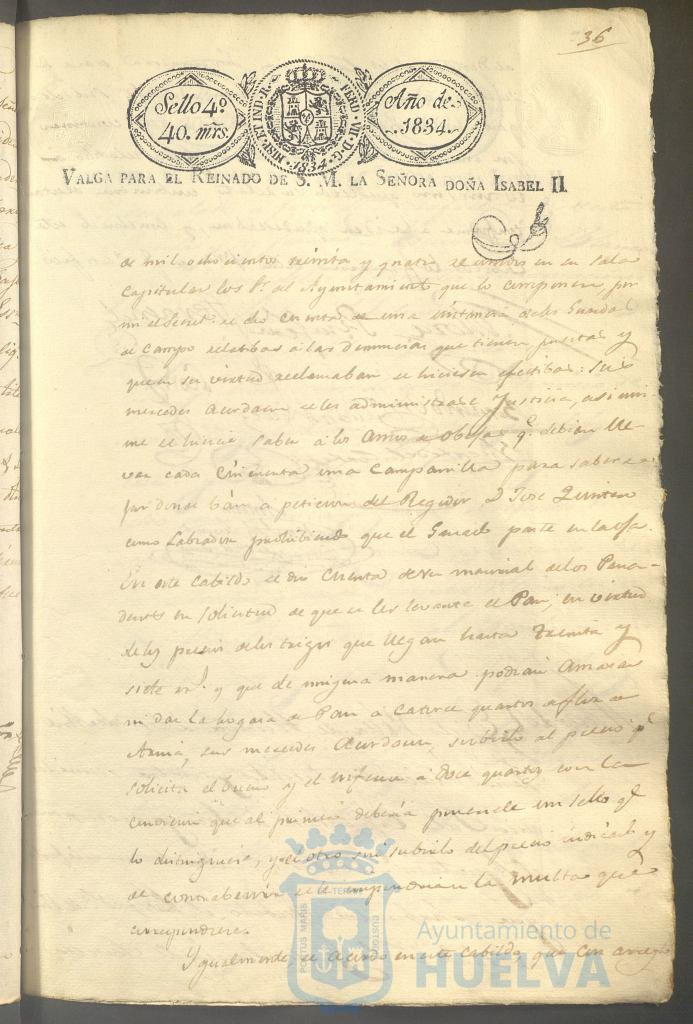 36
Sello 4º
40. mrs.
HISP. ET IND. R. FERD. VII. D. G.
1834
Año de
1834.
VALGA PARA EL REINADO DE S. M. LA SEÑORA DOÑA ISABEL II
de mil ochocientos treinta y quatro reunidos en su sala
Capitular los Sres del Ayuntamiento que lo componen, por
mi el Secret. se dio cuenta de una instancia de los Guardas
de Campo relatibas a las denuncias que tienen puestas y
que en su virtud reclamaban se hiciesen efectibas: Sus
mercedes Acordaron se les administrase Justicia, asi mis-
mo se hiciese saber á los Amos de Obejas qe debian lle-
var cada cincuenta una Campanilla para saber
por donde ban a peticion del Regidor D Jose Quintero
como Labrador prohibiendo que el Ganado paste en
En este Cabildo se dio Cuenta de un memorial de los Pana-
deros en solicitud de que se les levante el Pan, en virtud
de los precios de los trigos que llegan hasta treinta y
siete rs. y que de ninguna manera podian Amasar
ni dar la hogaza de Pan a Catorce quartos de flor de
Arina, sus mercedes Acordaron, subirlo al precio qe
solicita el bueno y el inferior a doce quartos con la
que al primero deberia ponersele un sello qe
lo distinguiese, y el otro sin subirlo del precio indicado y
de contrabenir se le impondria la multa que
correspondiere.
Ygualmente se Acordo en este Cabildo, que con arreglo
PORTUS MARIS ET TERRAE CUSTODIA
Ayuntamiento de
HUELVA